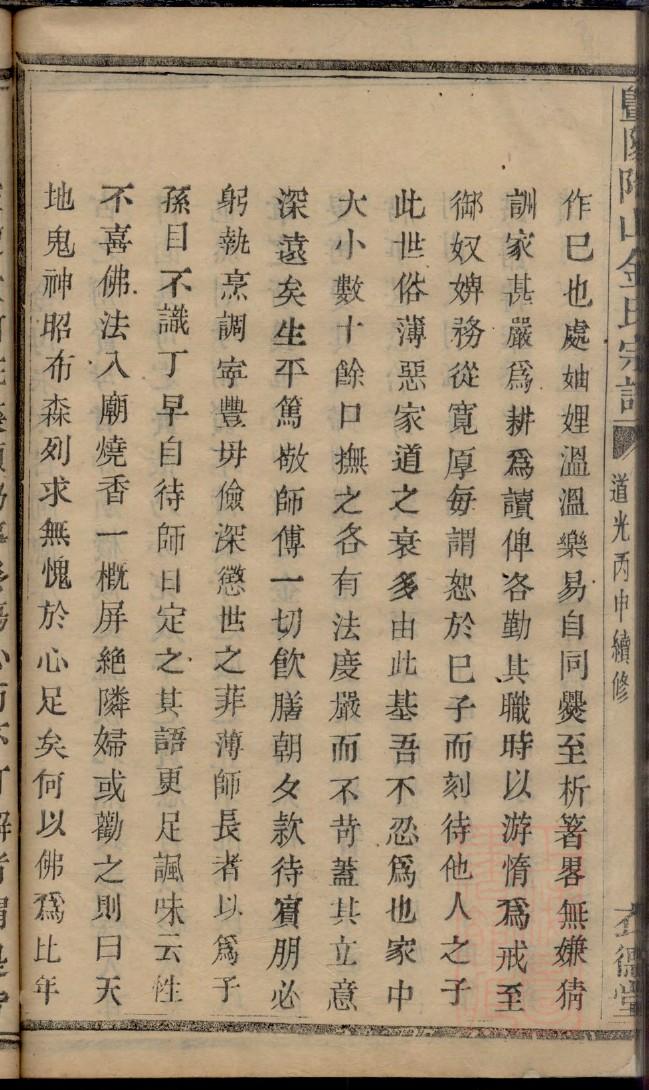 暨陽陶山金氏宗譜
道光丙申續修
作已也處妯娌溫溫樂易自同爨至析箸畧無嫌猜
訓家甚嚴爲耕爲讀俾各勤其職時以游惰爲戒至
御奴婢務從寬厚每謂恕於已子而刻待他人之子
此世俗薄惡家道之衰多由此基吾不忍爲也家中
大小數十餘口撫之各有法度嚴而不苛蓋其立意
深遠矣生平篤敬師傅一切飲膳朝夕款待賓朋必
躬執烹調寧豐毋儉深懲世之菲薄師長者以爲子
孫目不識丁早自待師日定之其語更足諷味云性
不喜佛法入廟燒香一概屏絕隣婦或勸之則曰天
地鬼神昭布森列求無愧於心足矣何以佛爲比年